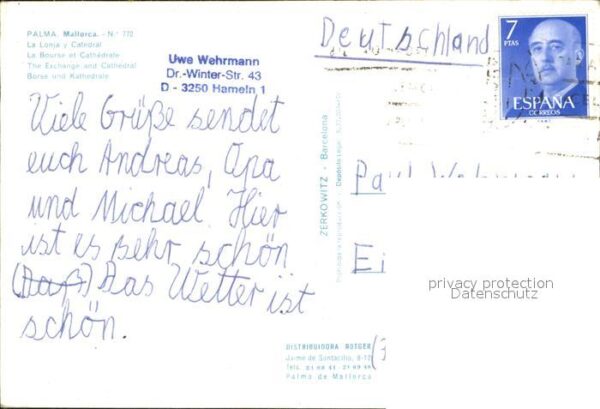 PALMA. Mallorca. - N.º 772
La Lonja y Catedral
La Bourse et Cathédrale
The Exchange and Cathedral
Börse und Kathedrale
Uwe Wehrmann
Dr.-Winter-Str. 43
D - 3250 Hameln 1
Viele Grüße sendet
euch Andreas, Opa
und Michael. Hier
ist es sehr schön
(Daß) Das Wetter ist
schön.
ZERKOWITZ - Barcelona
DISTRIBUIDORA ROTGER
Jaime de Santacilia, 8-10
Palma de Mallorca
Deutschland
7
PTAS
ESPAÑA
CORREOS
Paul
Ei
privacy protection
Datenschutz